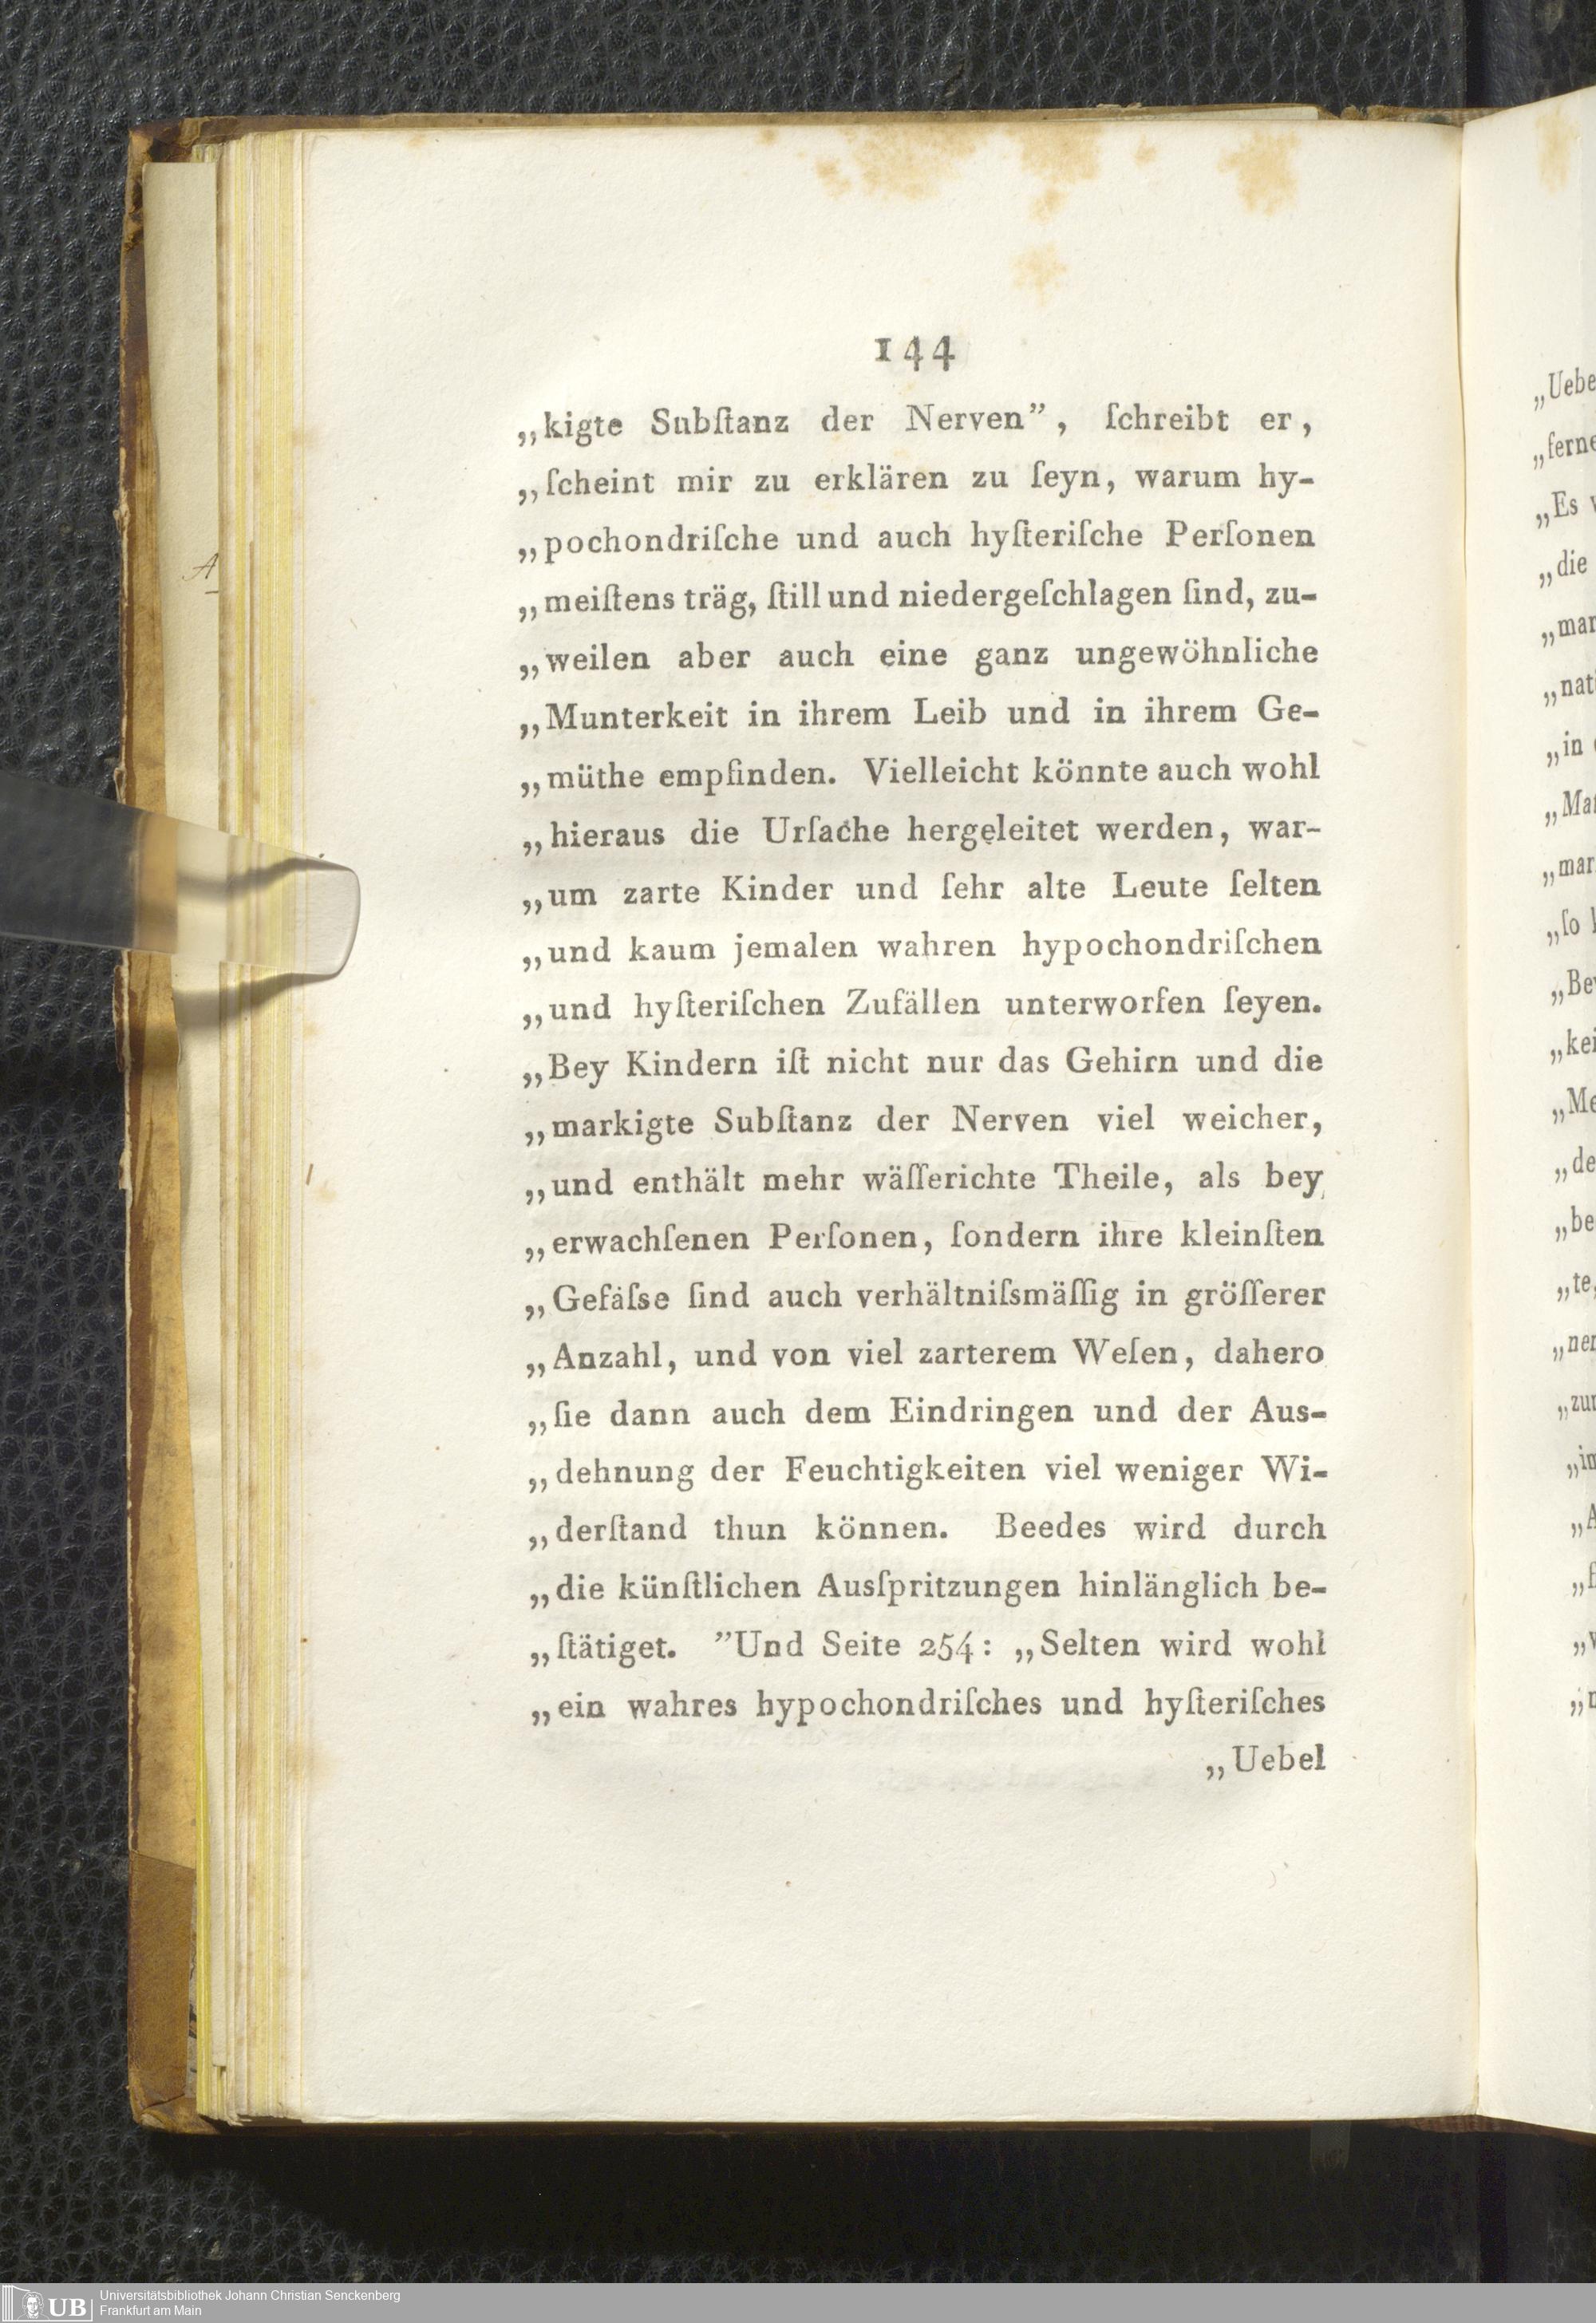 144
„kigte Subſtanz der Nerven”, ſchreibt er,
„ſcheint mir zu erklären zu ſeyn, warum hy-
„pochondriſche und auch hyſteriſche Perſonen
„meiſtens träg, ſtill und niedergeſchlagen ſind, zu-
„weilen aber auch eine ganz ungewöhnliche
„Munterkeit in ihrem Leib und in ihrem Ge-
„müthe empfinden. Vielleicht könnte auch wohl
„hieraus die Urſache hergeleitet werden, war-
„um zarte Kinder und ſehr alte Leute ſelten
„und kaum jemalen wahren hypochondriſchen
„und hyſteriſchen Zufällen unterworfen ſeyen.
„Bey Kindern iſt nicht nur das Gehirn und die
„markigte Subſtanz der Nerven viel weicher,
„und enthält mehr wäſſerichte Theile, als bey
„erwachſenen Perſonen, ſondern ihre kleinſten
„Gefäſse ſind auch verhältniſsmäſſig in gröſſerer
„Anzahl, und von viel zarterem Weſen, dahero
„ſie dann auch dem Eindringen und der Aus-
„dehnung der Feuchtigkeiten viel weniger Wi-
„derſtand thun können. Beedes wird durch
„die künſtlichen Ausſpritzungen hinlänglich be-
„ſtätiget. ”Und Seite 254: „Selten wird wohl
„ein wahres hypochondriſches und hyſteriſches
„Uebel
A
„Uebe
„ferne
„Es
„die
„mar
„nat
„in
„Mat
„mar
„ſo
„Be
„kei
„Me
„de
„be
„te,
„ner
„zur
„in
UB
Universitätsbibliothek Johann Christian Senckenberg
Frankfurt am Main